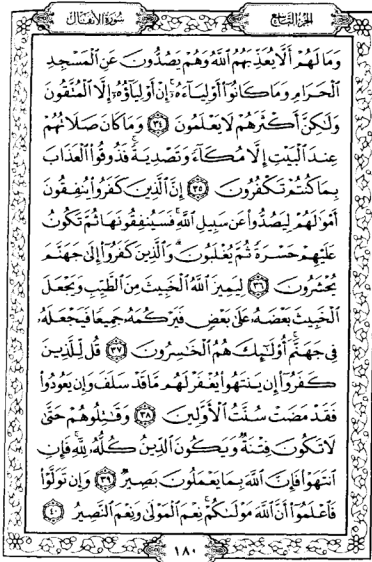 سُورَةُ الأَنفَالِ
الجُزْءُ التَّاسِعُ
وَمَا لَهُمْ أَلَّا يُعَذِّبَهُمُ ٱللَّهُ وَهُمْ يَصُدُّونَ عَنِ ٱلْمَسْجِدِ
ٱلْحَرَامِ وَمَا كَانُوٓا۟ أَوْلِيَآءَهُۥٓ ۚ إِنْ أَوْلِيَآؤُهُۥٓ إِلَّا ٱلْمُتَّقُونَ
وَلَٰكِنَّ أَكْثَرَهُمْ لَا يَعْلَمُونَ ٣٤ وَمَا كَانَ صَلَاتُهُمْ
عِندَ ٱلْبَيْتِ إِلَّا مُكَآءً وَتَصْدِيَةً ۚ فَذُوقُوا۟ ٱلْعَذَابَ
بِمَا كُنتُمْ تَكْفُرُونَ ٣٥ إِنَّ ٱلَّذِينَ كَفَرُوا۟ يُنفِقُونَ
أَمْوَٰلَهُمْ لِيَصُدُّوا۟ عَن سَبِيلِ ٱللَّهِ ۚ فَسَيُنفِقُونَهَا ثُمَّ تَكُونُ
عَلَيْهِمْ حَسْرَةً ثُمَّ يُغْلَبُونَ ۗ وَٱلَّذِينَ كَفَرُوٓا۟ إِلَىٰ جَهَنَّمَ
يُحْشَرُونَ ٣٦ لِيَمِيزَ ٱللَّهُ ٱلْخَبِيثَ مِنَ ٱلطَّيِّبِ وَيَجْعَلَ
ٱلْخَبِيثَ بَعْضَهُۥ عَلَىٰ بَعْضٍ فَيَرْكُمَهُۥ جَمِيعًا فَيَجْعَلَهُۥ
فِى جَهَنَّمَ ۚ أُو۟لَٰٓئِكَ هُمُ ٱلْخَٰسِرُونَ ٣٧ قُل لِّلَّذِينَ
كَفَرُوٓا۟ إِن يَنتَهُوا۟ يُغْفَرْ لَهُم مَّا قَدْ سَلَفَ وَإِن يَعُودُوا۟
فَقَدْ مَضَتْ سُنَّتُ ٱلْأَوَّلِينَ ٣٨ وَقَٰتِلُوهُمْ حَتَّىٰ
لَا تَكُونَ فِتْنَةٌ وَيَكُونَ ٱلدِّينُ كُلُّهُۥ لِلَّهِ ۚ فَإِنِ
ٱنتَهَوْا۟ فَإِنَّ ٱللَّهَ بِمَا يَعْمَلُونَ بَصِيرٌ ٣٩ وَإِن تَوَلَّوْا۟
فَٱعْلَمُوٓا۟ أَنَّ ٱللَّهَ مَوْلَىٰكُمْ ۚ نِعْمَ ٱلْمَوْلَىٰ وَنِعْمَ ٱلنَّصِيرُ ٤٠
١٨٠